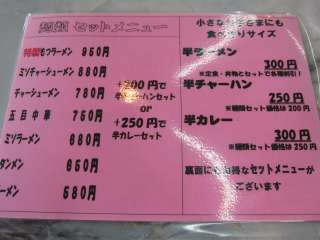 麺類 セットメニュー
特製もつラーメン 950円
ミソチャーシューメン 880円
チャーシューメン 780円
五目中華 750円
ミソラーメン 680円
タンメン 650円
ーメン 580円
+200円で
半チャーハンセット
or
+250円で
半カレーセット
小さなお子さまにも
食べきりサイズ
半ラーメン
300円
※定食・丼物とセットで各種割引!
半チャーハン
250円
※麺類セット価格は 200円
半カレー
300円
※麺類セット価格は 250円
裏面にもお得なセットメニューが
ございます